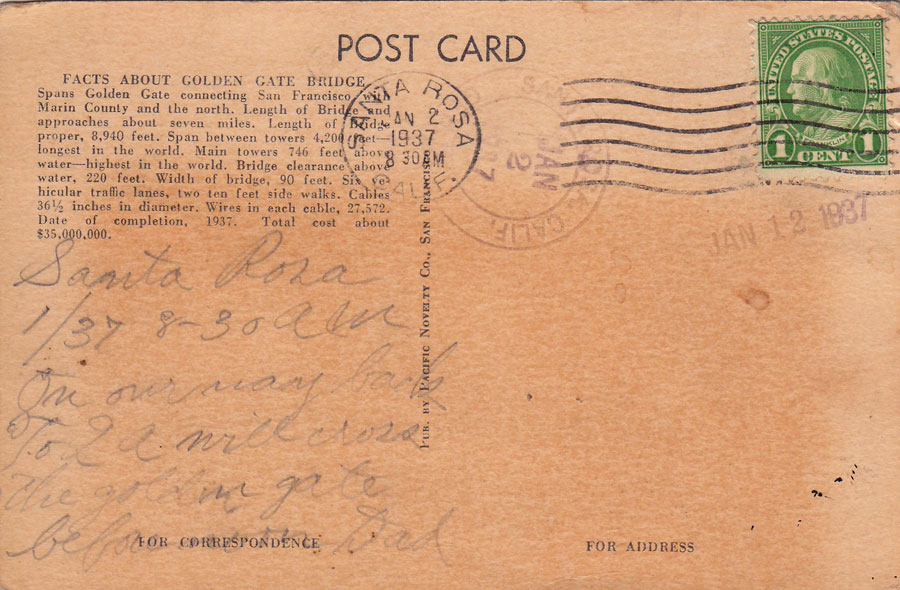 POST CARD
FACTS ABOUT GOLDEN GATE BRIDGE
Spans Golden Gate connecting San Francisco with
Marin County and the north. Length of Bridge and
approaches about seven miles. Length of Bridge
proper, 8,940 feet. Span between towers 4,200 feet—
longest in the world. Main towers 746 feet above
water—highest in the world. Bridge clearance above
water, 220 feet. Width of bridge, 90 feet. Six ve-
hicular traffic lanes, two ten feet side walks. Cables
36½ inches in diameter. Wires in each cable, 27,572.
Date of completion, 1937. Total cost about
$35,000,000.
SANTA ROSA
JAN 2
1937
8 30 AM
CALIF.
JAN
2
37
CALIF.
UNITED STATES POSTAGE
1 CENT 1
JAN 12 1937
PUB. BY PACIFIC NOVELTY CO., SAN FRANCISCO
Santa Rosa
1/37 8-30 AM
On our way back
To L A will cross
the golden gate
before Dad
FOR CORRESPONDENCE
FOR ADDRESS